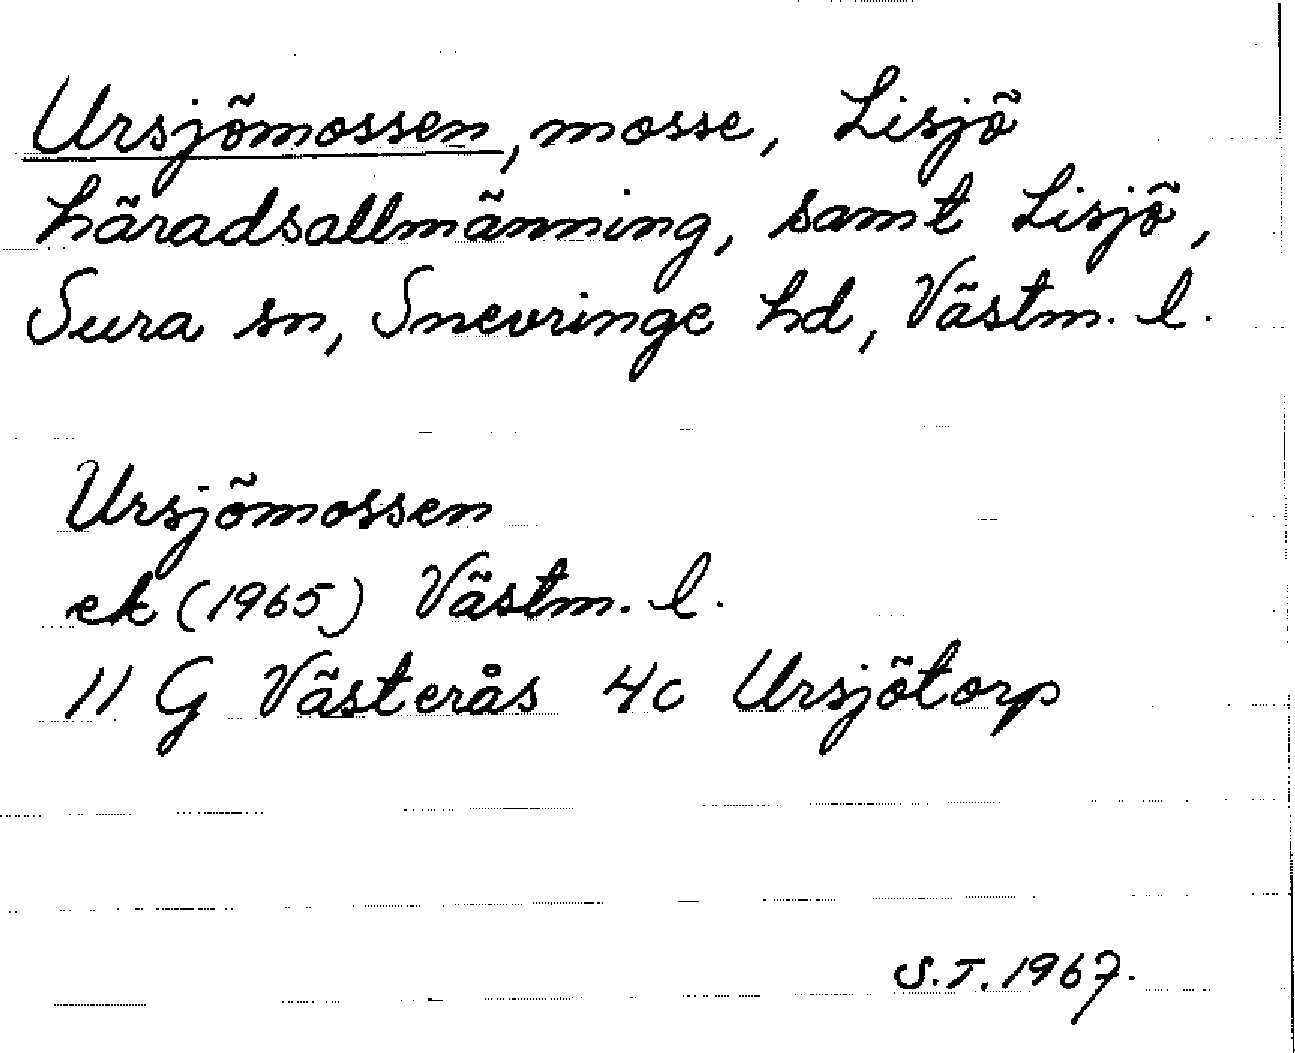 Ursjömossen, mosse, Lisjö
häradsallmänning, samt Lisjö,
Sura sn, Snevringe hd, Västm. l.
Ursjömossen
ek (1965) Västm. l.
11 G Västerås 4c Ursjötorp
S.T. 1967.